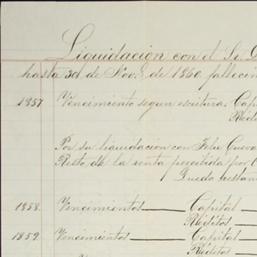 Liquidacion con el Sr. D
hasta 30 de Nov.e de 1860 fallecim
1857 Vencimiento segun escritura Capi
Redit
Por su liquidacion con Felix Cueva
Resto de la renta percibida por
Queda restan
1858 Vencimientos Capital
Réditos
1859. Vencimientos Capital
Réditos